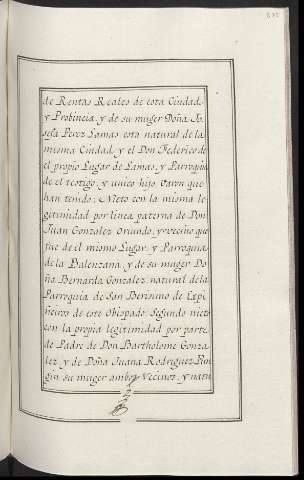 de Rentas Reales de esta Ciudad,
y Probincia, y de su muger Doña Jo
sefa Perez Lamas esta natural de la
misma Ciudad, y el Don Federico de
el propio Lugar de Lamas, y Parroquia
de el y unico hijo Varon que
han tenido: Nieto con la misma le
gitimidad por linea paterna de Don
Juan Gonzalez Oriundo, y vecino que
fue de el mismo Lugar, y Parroquia
de la Balenzana, y de su muger Do
ña Bernarda Gonzalez natural de la
Parroquia de San de Capi
ñeiros de este Obispado Segundo nieto
con la propia legitimidad por parte
de Padre de Don Bartholome Gonza
lez y de Doña Juana Rodriguez
su muger ambos Vecinos, y natu